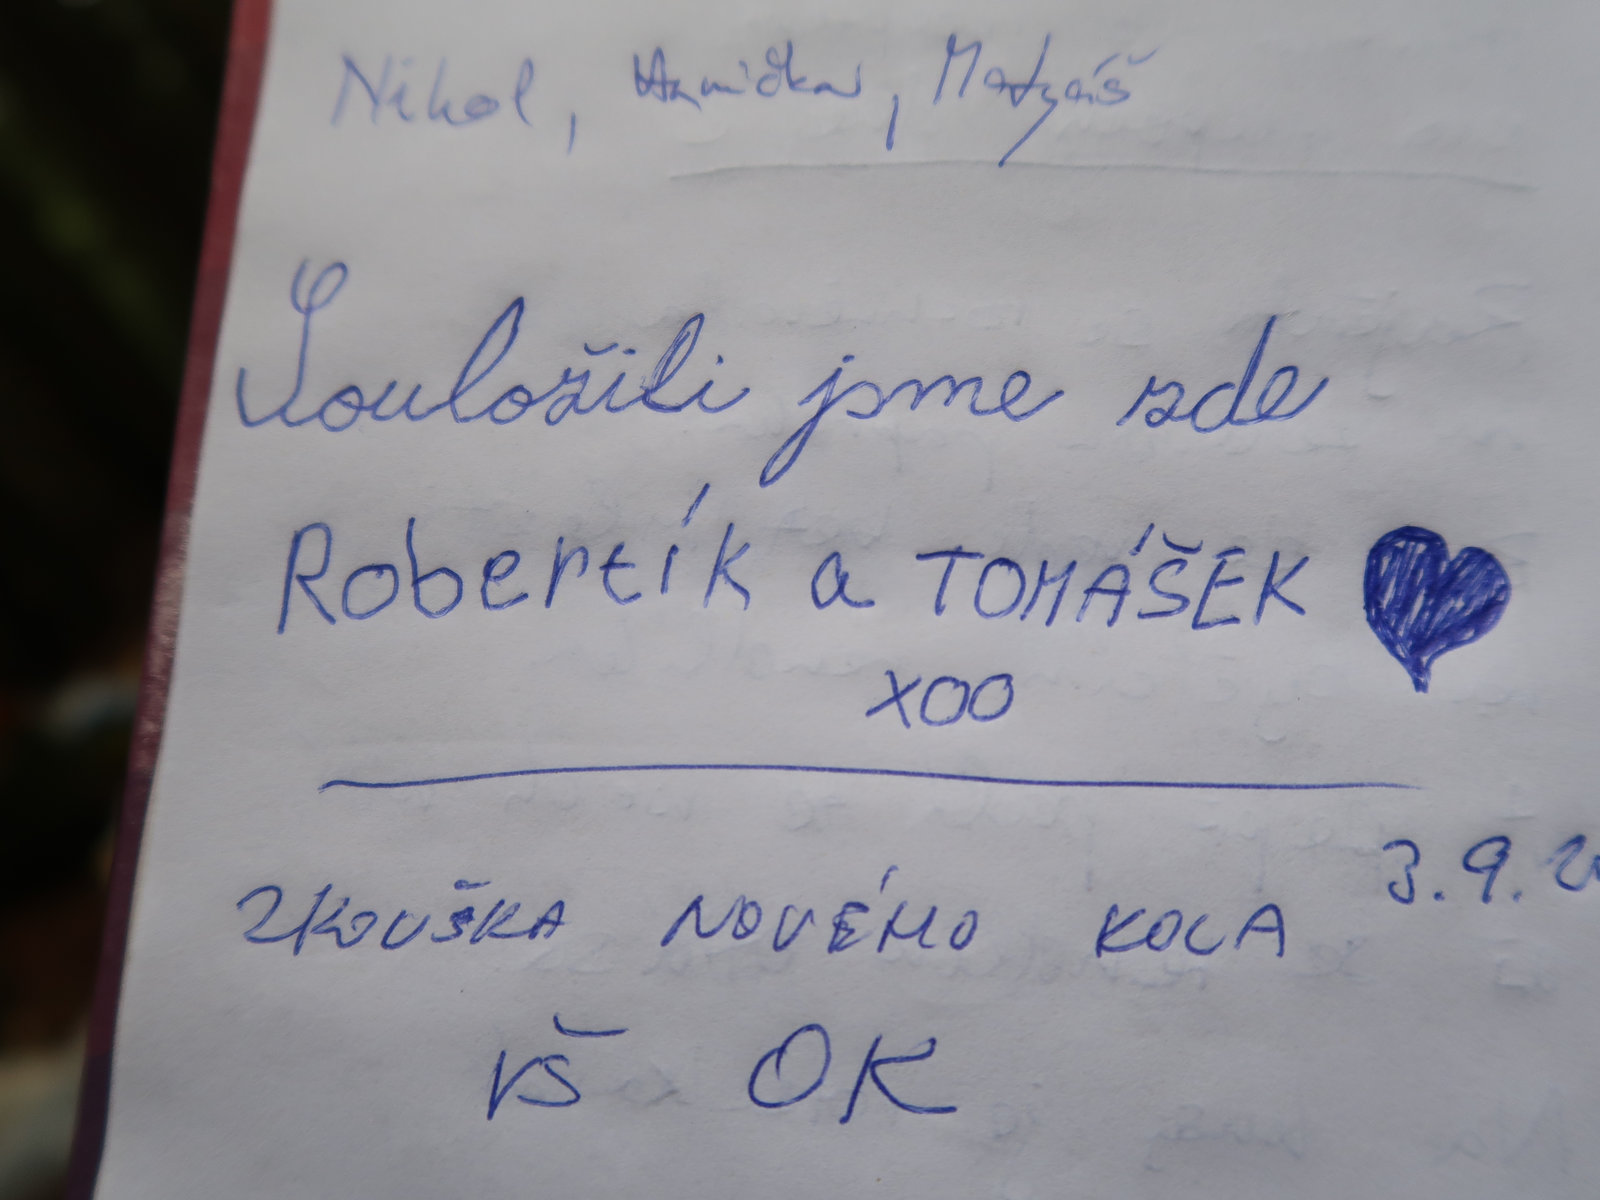 Nikol, Hanička, Matyáš
Souložili jsme zde
Robertík a TOMÁŠEK
XOO
3.9.
ZKOUŠKA NOVÉHO KOLA
VŠ OK